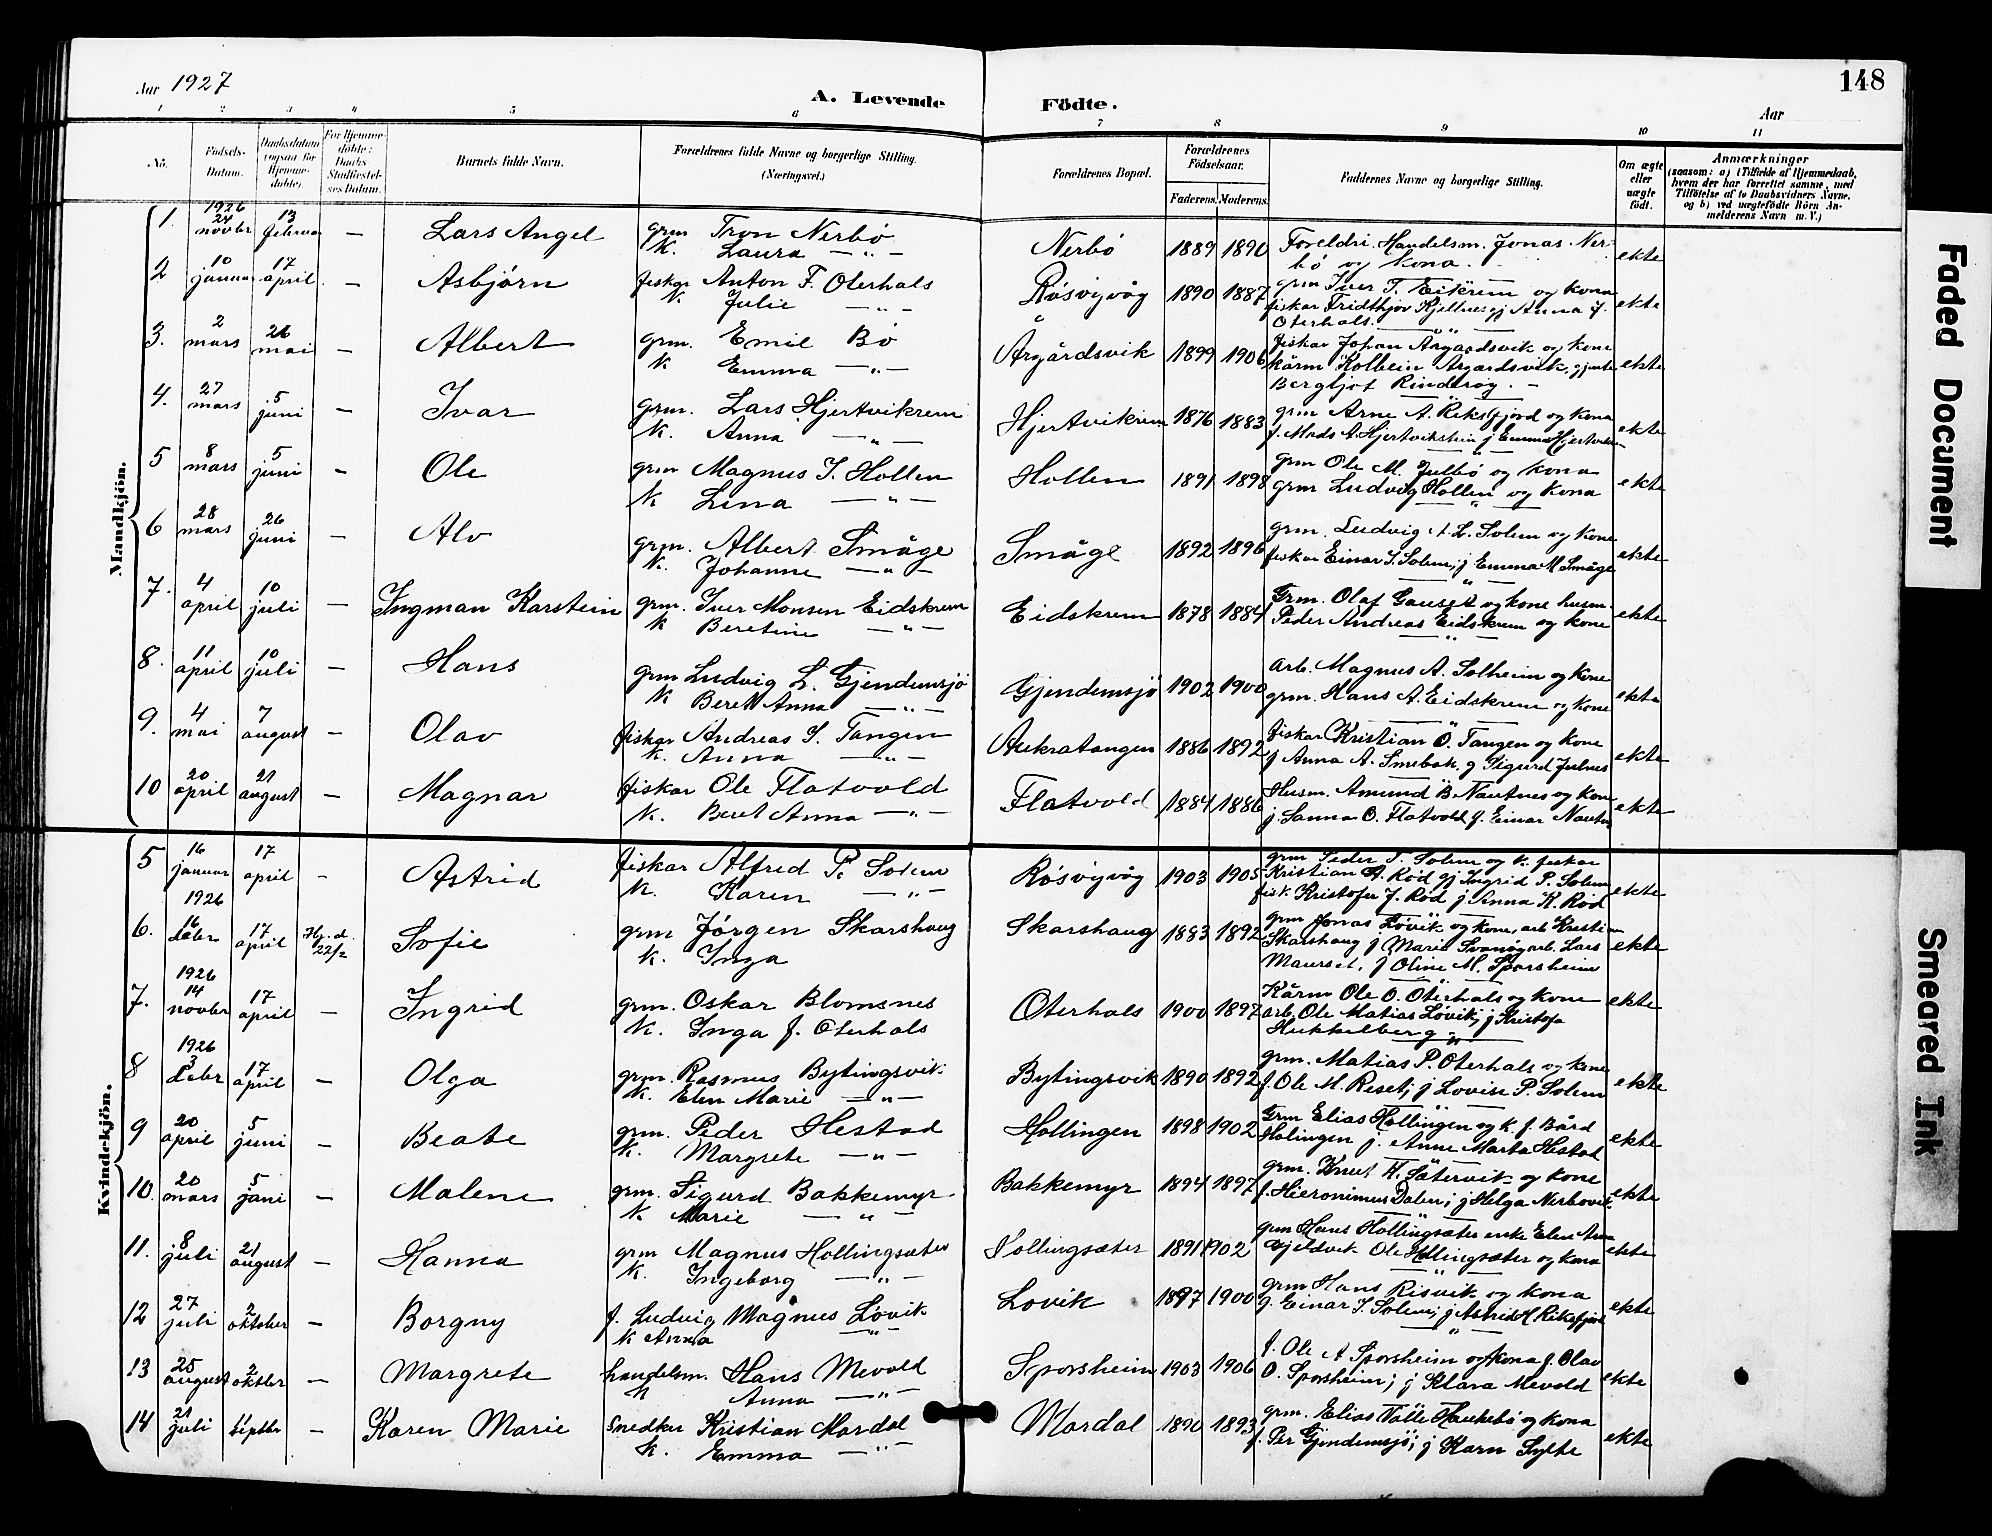 Aar 1927
A. Levende Födte.
Aar
148
1 2 3 4 5 6 7 8 9 10 11
No.
Födsels-Datum.
Daabsdatum (ogsaa for Hjemme-döbte).
For Hjemme-döbte: Daabs-Stadfæstel-ses Datum.
Barnets fulde Navn.
Forældrenes fulde Navne og borgerlige Stilling. (Næringsvei.)
Forældrenes Bopæl.
Forældrenes Födselsaar.
Faderens. Moderens.
Faddernes Navne og borgerlige Stilling.
Om ægte eller uægte födt.
Anmærkninger
(saasom: a) i Tilfælde af Hjemmedaab, hvem der har forrettet samme, med Tilföielse af to Daabsvidners Navne, og b) ved uægtefödte Börn An-melderens Navn m. V.)
Mandkjön.
1. 1926 24 novbr 13 februar — Lars Angel grm Tron Nerbø K. Laura —"— Nerbø 1889 1890 Foreldri Handelsm. Jonas Ner-bø og kona. ekte
2 10 januar 17 april — Asbjørn fiskar Anton F. Oterhals K. Julie —"— Røsvigvåg 1890 1887 grm Iver T. Eikrem og kona fiskar Fridthjov Kjellnes gj Anna J. Oterhals. ekte
3. 2 mars 26 mai — Albert grm. Emil Bø K Emma —"— Årgårdsvik 1899 1906 fiskar Johan Argaardsvik og kone kårm Kolbein Argardsvik, gjente Bergljot Rindarøy. ekte
4. 27 mars 5 juni — Ivar grm. Lars Hjertvikrem K. Anna —"— Hjertvikrem 1876 1883 grm Arne A. Reksfjord og kona f. Mads A. Hjertvikrem j Emma Hjertvikrem ekte
5 8 mars 5 juni — Ole grm Magnus J. Hollen K Lina —"— Hollen 1891 1898 grm Ole M. Julbø og kona grm Ludvig Hollen og kona ekte
6 28 mars 26 juni — Alv grm. Albert Småge K. Johanne —"— Småge 1892 1896 grm. Ludvig A. L. Solem og kone fiskar Einar S. Solem; j Emma M Småge ekte
7. 4 april 10 juli — Ingman Karstein grm. Iver Monsen Eidskrem K Beretine —"— Eidskrem 1878 1884 Grm. Olaf Gauset og kone husm. Peder Andreas Eidskrem og kone ekte
8. 11 april 10 juli — Hans grm Ludvig L. Gjendemsjø K Beret Anna —"— Gjendemsjø 1902 1900 arb. Magnus A. Solheim og kone grm. Hans A. Eidskrem og kone ekte
9. 4 mai 7 august — Olav fiskar Andreas S. Tangen K. Anna —"— Aukratangen 1886 1892 fiskar Kristian O. Tangen og kone j Anna A. Smebak, g Sigurd Julnes ekte
10 20 april 21 august — Magnar fiskar Ole Flatvold K. Beret Anna —"— Flatvold 1884 1886 Husm. Amund B. Nautnes og kone j. Sanna O. Flatvold, f. Einar Nautnes ekte
Kvindekjön.
5 16 januar 17 april — Astrid fiskar Alfred P. Solem K. Karen —"— Røsvigvåg 1903 1905 grm Peder T. Solem og k. fiskar Kristian A. Rød gj Ingrid P. Solem fisk. Kristofer J. Rød j Anna K. Rød ekte
6. 1926 16 debr 17 april Hj.d. 22/2 Sofie grm Jørgen Skarshaug K. Inga Skarshaug 1883 1892 grm Jonas Løvik og kone, arb Kristian Skarshaug j Marie Svanøy arb. Lars Maurset, j Oline M. Sporsheim ekte
7. 1926 14 novbr 17 april — Ingrid grm. Oskar Blomsnes K. Inga f. Oterhals Oterhals 1900 1897 Kårm Ole O. Oterhals og kone arb. Ole Matias Løvik, j Kristofa Hukkelberg ekte
8 1926 3 debr 17 april — Olga grm. Rasmus Bytingsvik K. Elen Marie —"— Bytingsvik 1890 1892 grm. Matias P. Oterhals og kone f. Ole M. Reset; j Lovise P. Solem ekte
9 20 april 5 juni — Beate grm. Peder Hestad K. Margrete —"— Hollingen 1898 1902 Grm Elias Hollingen og k f. Bård Holingen j. Anne Marta Hestad ekte
10. 20 mars 5 juni — Malene grm. Sigurd Bakkemyr K. Marie —"— Bakkemyr 1894 1897 grm. Knut H. Sätervik og kone f. Hieronimus Dalen; j Helga Nerbøvik ekte
11. 8 juli 21 august — Hanna grm Magnus Hollingsæter K. Ingeborg —"— Hollingsæter 1891 1902 grm Hans Hollingsæter enke Elen Ann Gjeldvik Ole Hollingsæter og kona ekte
12 27 juli 2 oktober — Borgny f. Ludvig Magnus Løvik K Anna —"— Lovik 1897 1900 grm Hans Risvik og kona g. Einar S. Solem; j Astrid H Riksfjord ekte
13 25 august 2 oktbr — Margrete handelsm. Hans Mevold K Anna —"— Sporsheim 1903 1906 f. Ole A Sporsheim og kona f. Olav O. Sporsheim; j Klara Mevold ekte
14 21 juli 11 septbr — Karen Marie Snedker Kristian Mordal K. Emma —"— Mordal 1890 1893 grm. Elias Valle Haukebø og kona f. Per Gjendemsjø; j Karn Sylte ekte
Faded Document
Smeared Ink